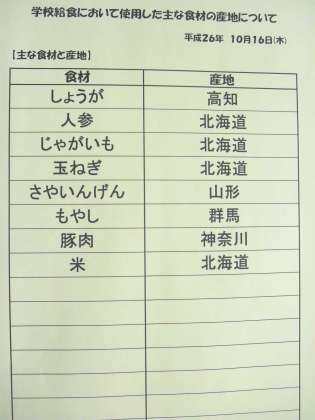 学校給食において使用した主な食材の産地について
平成26年 10月16日(木)
【主な食材と産地】
食材 産地
しょうが 高知
人参 北海道
じゃがいも 北海道
玉ねぎ 北海道
さやいんげん 山形
もやし 群馬
豚肉 神奈川
米 北海道